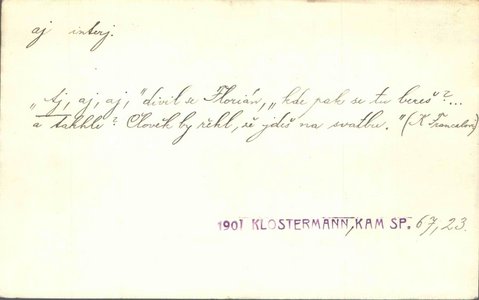 aj interj.
„Aj, aj, aj," divil se Florián, „kde pak se tu bereš?...
a takhle? Člověk by řekl, že jdeš na svatbu." (K Francelovi)
1901 KLOSTERMANN, KAM SP. 67, 23.